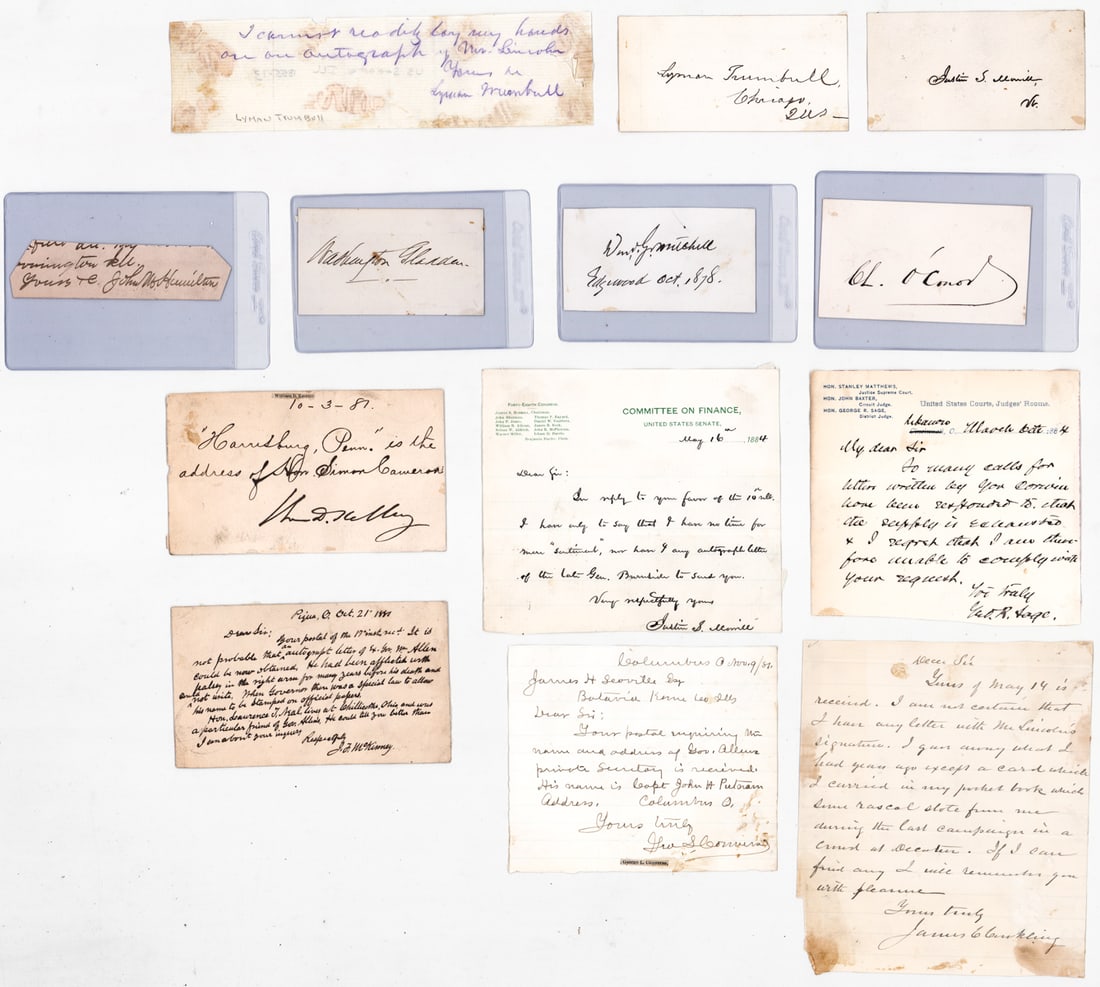 I cannot readily lay my hands
on an autograph of Mr. Lincoln
Yours &c
Lyman Trumbull
LYMAN TRUMBULL
Lyman Trumbull,
Chicago,
Ills
Justin S. Morrill
Vt.
Yours &c. John M. Hamilton
Washington Gladden
Don. G. Mitchell
Edgewood Oct. 1878.
Ch. O'Conor
William D. Kelley
10-3-81.
"Harrisburg, Penn." is the
address of Hon Simon Cameron
Wm D. Kelley
FORTY-EIGHTH CONGRESS.
COMMITTEE ON FINANCE,
UNITED STATES SENATE,
May 16th 1884
Dear Sir:
In reply to your favor of the 10th ult.
I have only to say that I have no time for
mere "sentiment," nor have I any autograph letter
of the late Gen. Burnside to send you.
Very respectfully yours
Justin S. Morrill
HON. STANLEY MATTHEWS,
Justice Supreme Court.
HON. JOHN BAXTER,
Circuit Judge.
HON. GEORGE R. SAGE,
District Judge.
United States Courts, Judges' Rooms.
Lebanon O. March 1884
My dear Sir
So many calls for
letters written by Gov Corwin
have been responded to that
the supply is exhausted
& I regret that I am there
fore unable to comply with
your request.
Yrs Truly
Geo. R. Sage.
Piqua, O. Oct. 21st 1881
Dear Sir:
Your postal of the 17th inst rec'd. It is
not probable that an autograph letter of Ex. Gov. Wm Allen
could be now obtained. He had been afflicted with
palsey in the right arm for many years before his death and
could not write. When Governor there was a special law to allow
his name to be stamped on official papers.
Hon. Lawrence T. Neal lives at Chillicothe, Ohio and was
a particular friend of Gov. Allen. He could tell you better than
I can about your inquiry
Respectfully
J. F. McKinney
Columbus O Nov 9/81.
James H Scoville Esq
Batavia Kane Co Ills
Dear Sir:
Your postal inquiring the
name and address of Gov. Allens
private Secretary is received.
His name is Capt John H Putnam
Address. Columbus O.
Yours truly
Geo L Converse
George L. Converse,
Dear Sir
Yours of May 14 is
received. I am not certain that
I have any letter with Mr Lincoln's
signature. I gave away what I
had years ago except a card which
I carried in my pocket book which
some rascal stole from me
during the last campaign in a
crowd at Decatur. If I can
find any I will remember you
with pleasure
Yours truly
James C Conkling